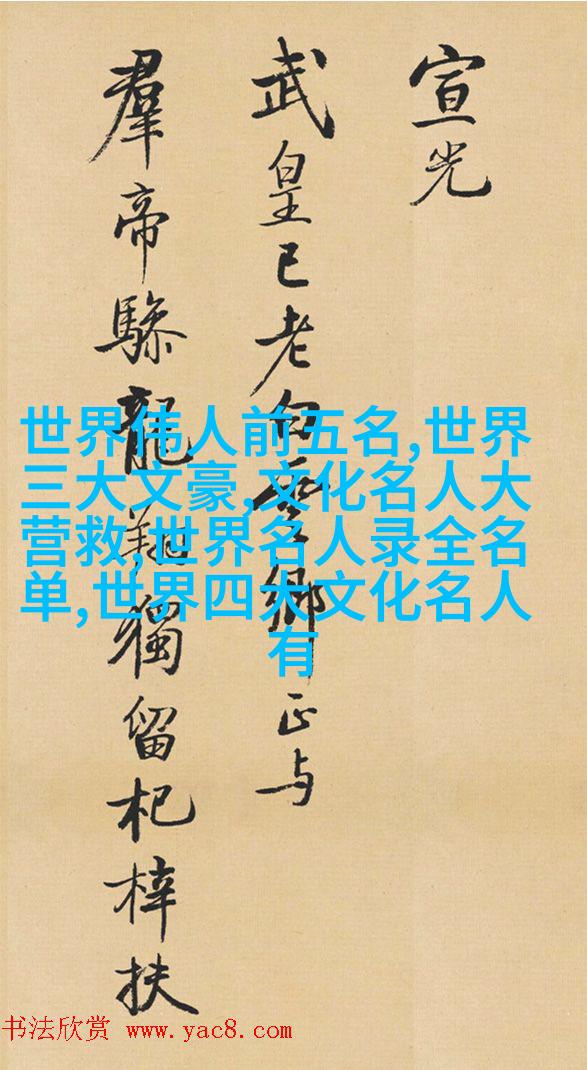 宣光
武皇已老白雲鄉正与
羣帝驂龍翔獨留杞梓扶
世界伟人前五名,世界
三大文豪,文化名人大
营救,世界名人录全名
单,世界四大文化名人
有
书法欣赏 www.yac8.com